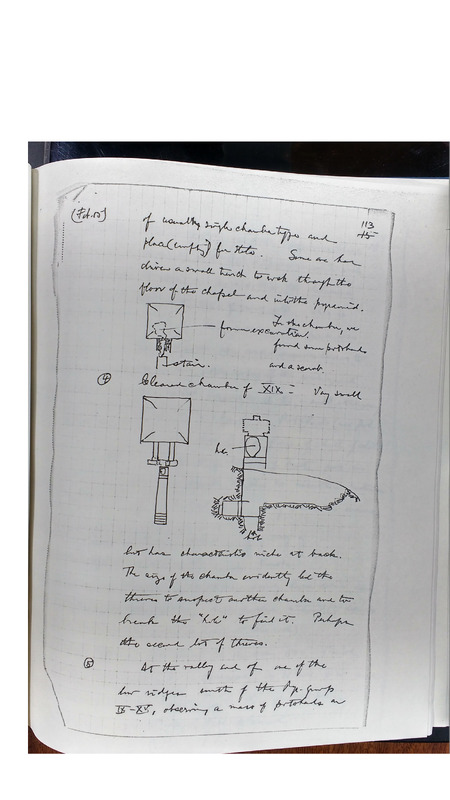 (Feb. 10)
113
15
of usually single chamber types and
place (empty) for stela. Some one has
driven a small trench to work through the
floor of the chapel and into the pyramid.
from excavation,
In the chamber, we
found some potsherds
and a scarab.
stair.
④ Cleared chamber of XIX = Very small
hole
but has characteristic niche at back.
The size of the chamber evidently led the
thieves to suspect another chamber and to
break the "hole" to find it. Perhaps
the second lot of thieves.
⑤ At the valley end of one of the
low ridges south of the Pyr. group
IX-XV, observing a mass of potsherds on